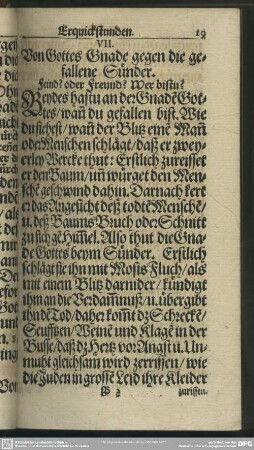 Erquickstunden. 19
VII.
Von Gottes Gnade gegen die ge-
fallene Sünder.
Feind? oder Freund? Wer bistu?
Beydes hastu an der Gnadē Got-
tes/ wañ du gefallen bist. Wie
du siehest/ wañ der Blitz eine Mañ
oder Menschen schlägt/ daß er zwey-
erley Wercke thut: Erstlich zureisset
er den Baum/ uñ würget den Men-
schē geschwind dahin. Darnach kert
er das Angesicht deß todtē Menschē/
u. deß Baums Bruch oder Schnitt
zu sich gē. Him̃el. Also thut die Gna-
de Gottes beym Sünder. Erstlich
schlägt sie ihn mit Mosis Fluch/ als
mit einem Blitz darnider/ kündigt
ihm an die Verdamnuß/ u. übergibt
ihn dē Tod/ daher kom̃t dz Schreckē/
Seufftzen/ Weinē und Klagē in der
Busse/ daß dz Hertz vor Angst u. Un-
muht gleichsam wird zerrissen/ wie
die Juden in grosse Leid ihre Kleider
B 2 zurissen.